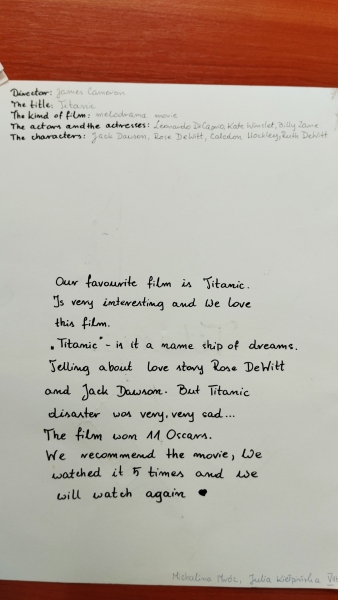 Director: James Cameron
The title: Titanic
The kind of film: melodrama movie
The actors and the actresses: Leonardo DiCaprio, Kate Winslet, Billy Zane
The characters: Jack Dawson, Rose DeWitt, Caledon Hockley, Ruth DeWitt
Our favourite film is Titanic.
Is very interesting and we love
this film.
„Titanic" - is it a name ship of dreams.
Telling about love story Rose DeWitt
and Jack Dawson. But Titanic
disaster was very, very sad...
The film won 11 Oscars.
We recommend the movie, We
watched it 5 times and we
will watch again ♥
Michalina Mróz, Julia